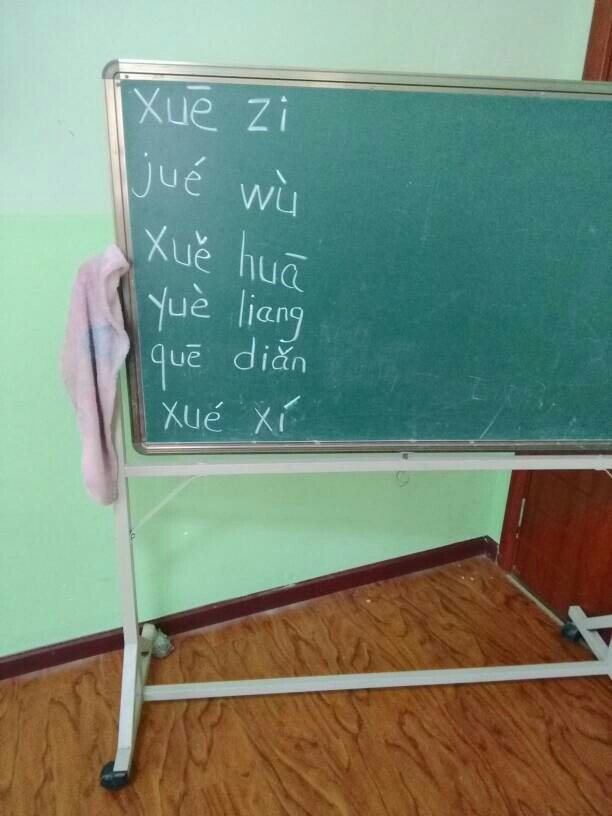 xuē zi
jué wù
xuě huā
yuè liang
quē diǎn
xué xí